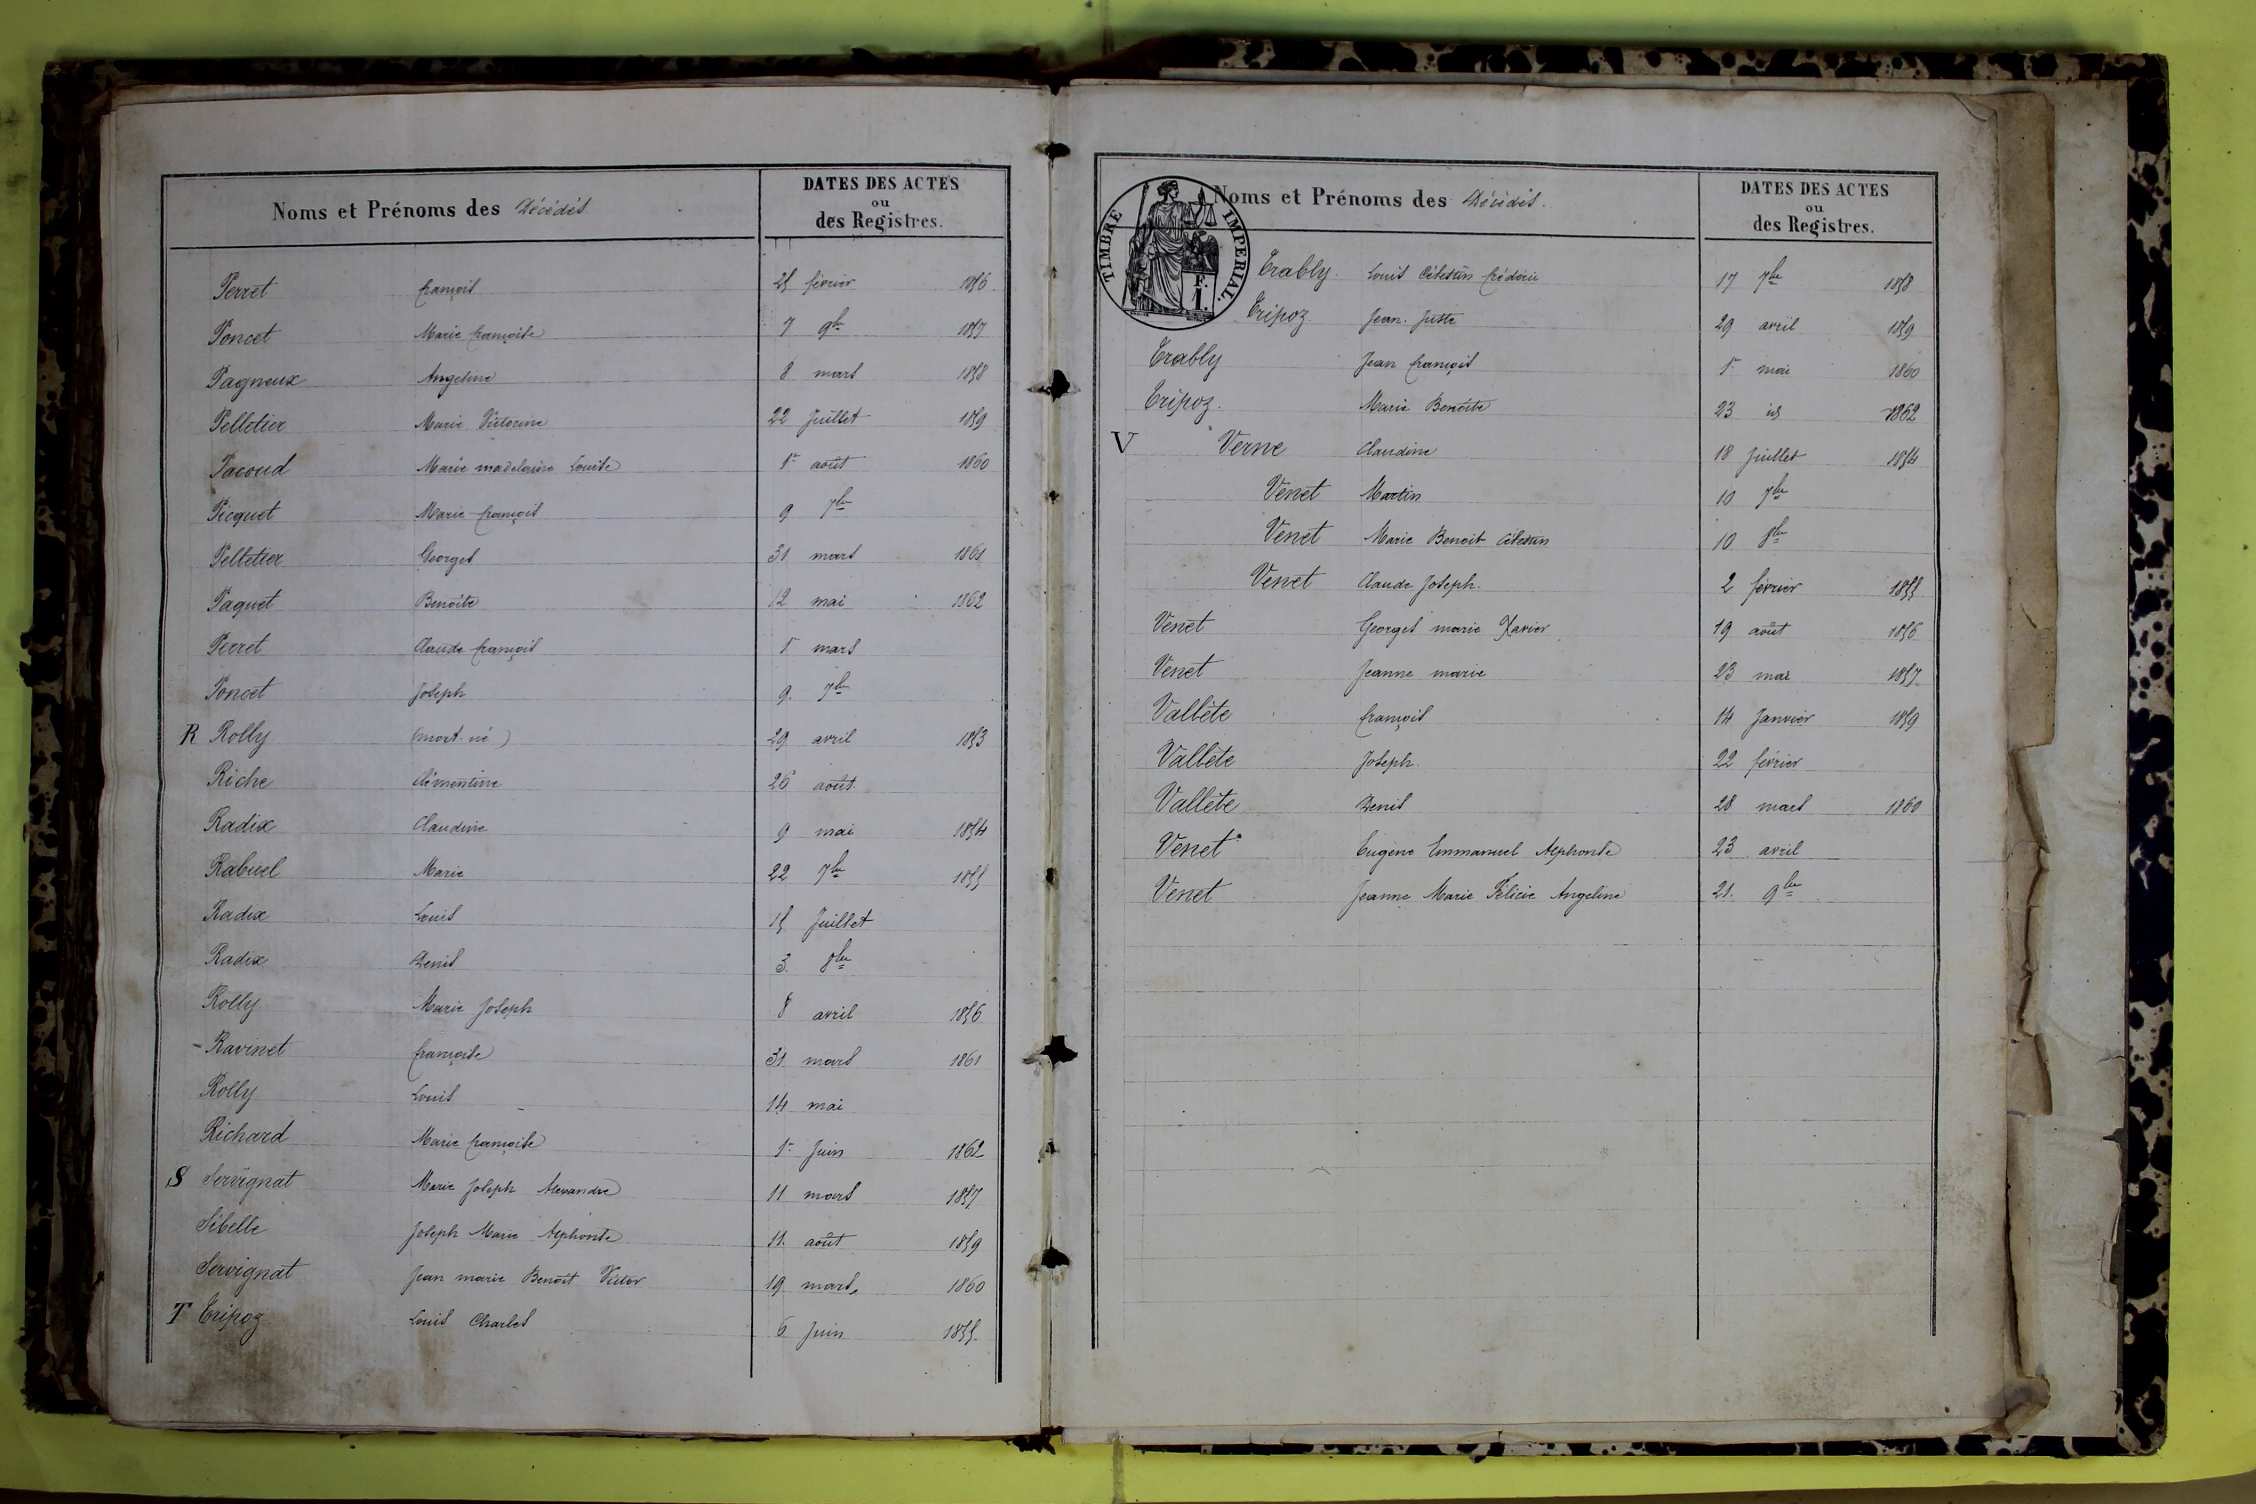 Noms et Prénoms des Décédés.
DATES DES ACTES
ou
des Registres.
Perret François 25 février 1856.
Poncet Marie françoise 7 9bre 1857
Pagneux Angeline 8 mars 1858
Pelletier Marie Victorine 22 Juillet 1859
Pacoud Marie madeleine Louise 1er août 1860
Picquet Marie françois 9 7bre
Pelletier Georges 31 mars 1861
Paquet Benoîte 12 mai 1862
Perret Claude françois 5 mars
Poncet Joseph 9. 7bre
R Rolly (mort né) 29 avril 1853
Riche Clémentine 26 août.
Radix Claudine 9 mai 1854
Rabuel Marie 22 7bre 1855
Radix Louis 15 Juillet
Radix Denis 3. 8bre
Rolly Marie Joseph 8 avril 1856
Ravinet françoise 31 mars 1861
Rolly Louis 14 mai
Richard Marie françoise 1er Juin 1862
S Servignat Marie Joseph Alexandre 11 mars 1857
Sibelle Joseph Marie Alphonse 11. août 1859
Servignat Jean marie Benoît Victor 19 mars. 1860
T Tripoz Louis Charles 6 Juin 1855.
Noms et Prénoms des Décédés.
DATES DES ACTES
ou
des Registres.
TIMBRE IMPERIAL.
F.
1.
Trably. Louis Célestin frédéric 17 7bre 1858
Tripoz Jean. Juste 29 avril 1859
Trably Jean françois 5 mai 1860
Tripoz. Marie Benoîte 23 id 1862
V Verne Claudine 18 Juillet 1854
Venet Martin 10 7bre
Venet Marie Benoit Célestin 10 8bre
Venet Claude Joseph. 2 février 1855
Venet Georges marie Xavier 19 août 1856
Venet Jeanne marie 23 mai 1857.
Vallète françois 14 Janvier 1859
Vallète Joseph. 22 février
Vallète Denis 28 mars 1860
Venet Eugène Emmanuel Alphonse 23 avril
Venet Jeanne Marie Félicie Angeline 21. 9bre